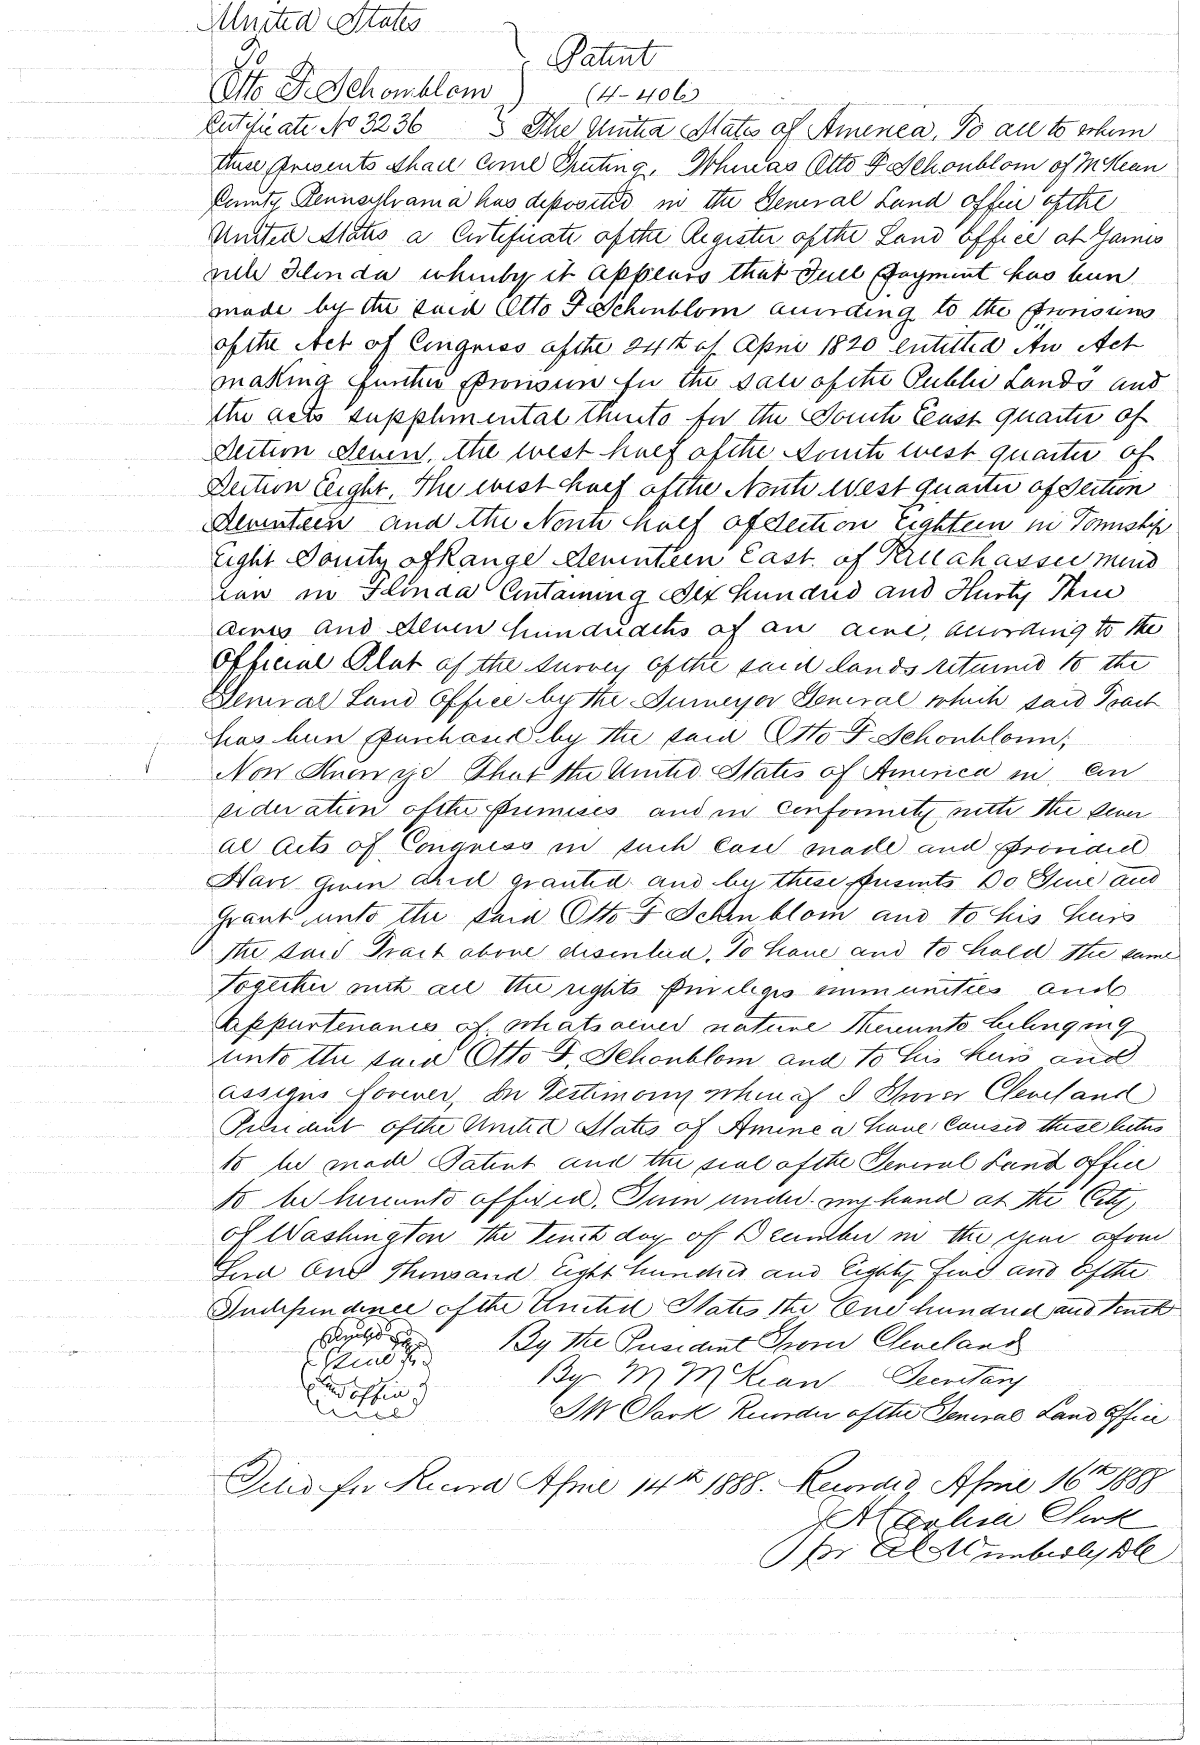 United States
To
Patent
Otto F. Schonblom
(4-406)
Certificate No 3236 } The United States of America, To all to whom
these presents shall come Greeting, Whereas Otto F Schonblom of McKean
County Pennsylvania has deposited in the General Land office of the
United States a Certificate of the Register of the Land office at Gaines
ville Florida whereby it appears that Full payment has been
made by the said Otto F Schonblom according to the provisions
of the Act of Congress of the 24th of April 1820 entitled "An Act
making further provision for the sale of the Public Lands" and
the acts supplimental thereto for the South East quarter of
Section Seven, the west half of the South west quarter of
Section Eight, The west half of the North West quarter of Section
Seventeen and the North half of Section Eighteen in Township
Eight South of Range Seventeen East of Tallahassee Merid
ian in Florida Containing Six hundred and Thirty Three
acres and Seven hundredths of an acre, according to the
Official Plat of the survey of the said lands returned to the
General Land Office by the Surveyor General which said Tract
has been purchased by the said Otto F. Schonblom;
Now Know ye That the United States of America in Con
sideration of the premises and in conformity with the sever
al Acts of Congress in such case made and provided
Have given and granted and by these presents Do Give and
Grant unto the said Otto F Schonblom and to his heirs
the said Tract above described, To have and to hold the same
together with all the rights privileges immunities and
appurtenances of whatsoever nature thereunto belonging
unto the said Otto F. Schonblom and to his heirs and
assigns forever, In Testimony whereof I Grover Cleveland
President of the United States of America have caused these letters
to be made Patent and the seal of the General Land office
to be hereunto affixed, Given under my hand at the City
of Washington the Tenth day of December in the year of our
Lord One Thousand Eight hundred and Eighty five and of the
Independence of the United States the One hundred and tenth
By the President Grover Cleveland
By M McKean Secretary
Land office
S W Clark Recorder of the General Land Office
Filed for Record April 14th 1888. Recorded April 16th 1888
Clerk
for Wimberley DC